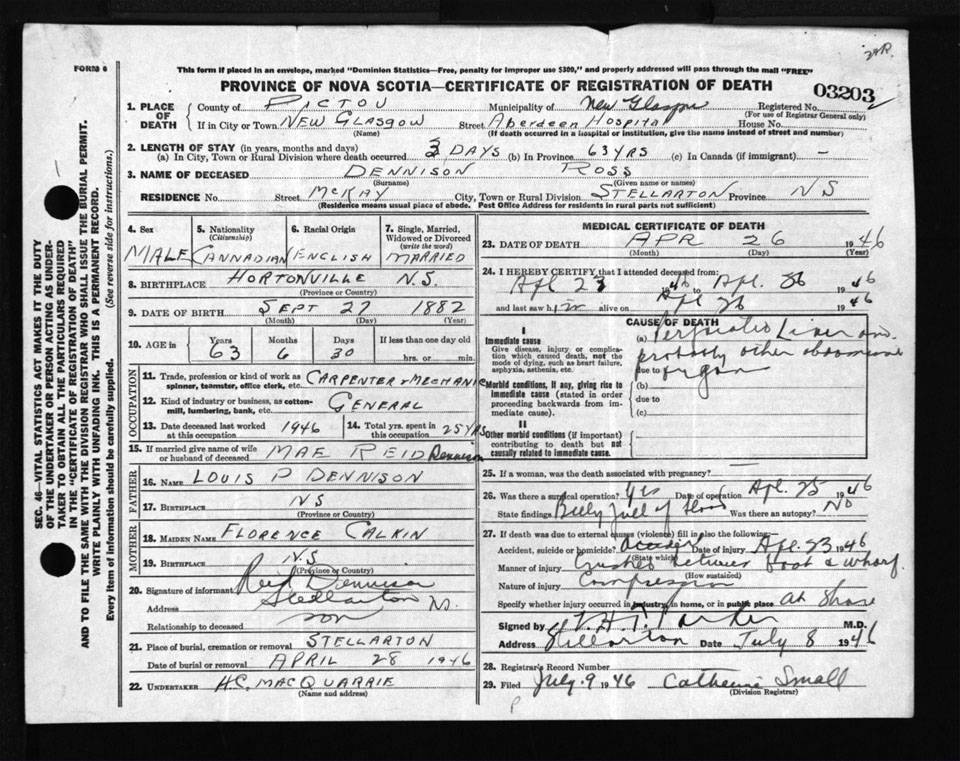 29R.
FORM 6
This form if placed in an envelope, marked "Dominion Statistics—Free, penalty for improper use $300," and properly addressed will pass through the mail "FREE"
PROVINCE OF NOVA SCOTIA—CERTIFICATE OF REGISTRATION OF DEATH
03203
1. PLACE OF DEATH
County of PICTOU Municipality of New Glasgow Registered No.
(For use of Registrar General only)
If in City or Town NEW GLASGOW Street Aberdeen Hospital House No.
(Name) (If death occurred in a hospital or institution, give the name instead of street and number)
2. LENGTH OF STAY (in years, months and days)
(a) In City, Town or Rural Division where death occurred 3 DAYS (b) In Province 63 YRS (c) In Canada (if immigrant) —
3. NAME OF DECEASED DENNISON ROSS
(Surname) (Given name or names)
RESIDENCE No. Street McKAY City, Town or Rural Division STELLARTON Province NS
(Residence means usual place of abode. Post Office Address for residents in rural parts not sufficient)
SEC. 46—VITAL STATISTICS ACT MAKES IT THE DUTY
OF THE UNDERTAKER OR PERSON ACTING AS UNDER-
TAKER TO OBTAIN ALL THE PARTICULARS REQUIRED
IN THE "CERTIFICATE OF REGISTRATION OF DEATH"
AND TO FILE THE SAME WITH THE DIVISION REGISTRAR WHO SHALL ISSUE THE BURIAL PERMIT.
WRITE PLAINLY WITH UNFADING INK. THIS IS A PERMANENT RECORD.
Every item of information should be carefully supplied. (See reverse side for instructions.)
4. Sex 5. Nationality (Citizenship) 6. Racial Origin 7. Single, Married, Widowed or Divorced (write the word)
MALE CANNADIAN ENGLISH MARRIED
8. BIRTHPLACE HORTONVILLE N.S.
(Province or Country)
9. DATE OF BIRTH SEPT 27 1882
(Month) (Day) (Year)
10. AGE in Years Months Days If less than one day old
63 6 30 hrs. or min.
OCCUPATION
11. Trade, profession or kind of work as spinner, teamster, office clerk, etc. CARPENTER & MECHANIC
12. Kind of industry or business, as cotton-mill, lumbering, bank, etc. GENERAL
13. Date deceased last worked at this occupation 1946 14. Total yrs. spent in this occupation 25 YRS
15. If married give name of wife or husband of deceased MAE REID Dennison
FATHER
16. NAME LOUIS P DENNISON
17. BIRTHPLACE NS
(Province or Country)
MOTHER
18. MAIDEN NAME FLORENCE CALKIN
19. BIRTHPLACE N.S
(Province or Country)
20. Signature of informant Reid Dennison
Address Stellarton NS.
Relationship to deceased son
21. Place of burial, cremation or removal STELLARTON
Date of burial or removal APRIL 28 1946
22. UNDERTAKER H.C. MACQUARRIE
(Name and address)
MEDICAL CERTIFICATE OF DEATH
23. DATE OF DEATH APR 26 1946
(Month) (Day) (Year)
24. I HEREBY CERTIFY that I attended deceased from:
Apl 23 1946 to Apl. 26 1946
and last saw him alive on Apl 26 1946
CAUSE OF DEATH
I
Immediate cause
Give disease, injury or complication which caused death, not the mode of dying, such as heart failure, asphyxia, asthenia, etc.
(a) Perforated Liver and
probably other abdominal
due to organ
Morbid conditions, if any, giving rise to immediate cause (stated in order proceeding backwards from immediate cause).
(b)
due to
(c)
II
Other morbid conditions (if important) contributing to death but not causally related to immediate cause.
25. If a woman, was the death associated with pregnancy?
26. Was there a surgical operation? Yes Date of operation Apl. 25 1946
State findings Belly full of blood Was there an autopsy? No
27. If death was due to external causes (violence) fill in also the following:
Accident, suicide or homicide? Accident Date of injury Apl. 23 1946
(State which)
Manner of injury Crushed between boat & wharf.
(How sustained)
Nature of injury Compression
Specify whether injury occurred in industry, in home, or in public place at shore
Signed by V.H.T. Parker M.D.
Address Stellarton Date July 8 1946
28. Registrar's Record Number
29. Filed July 9 1946 Catherine Small
(Division Registrar)